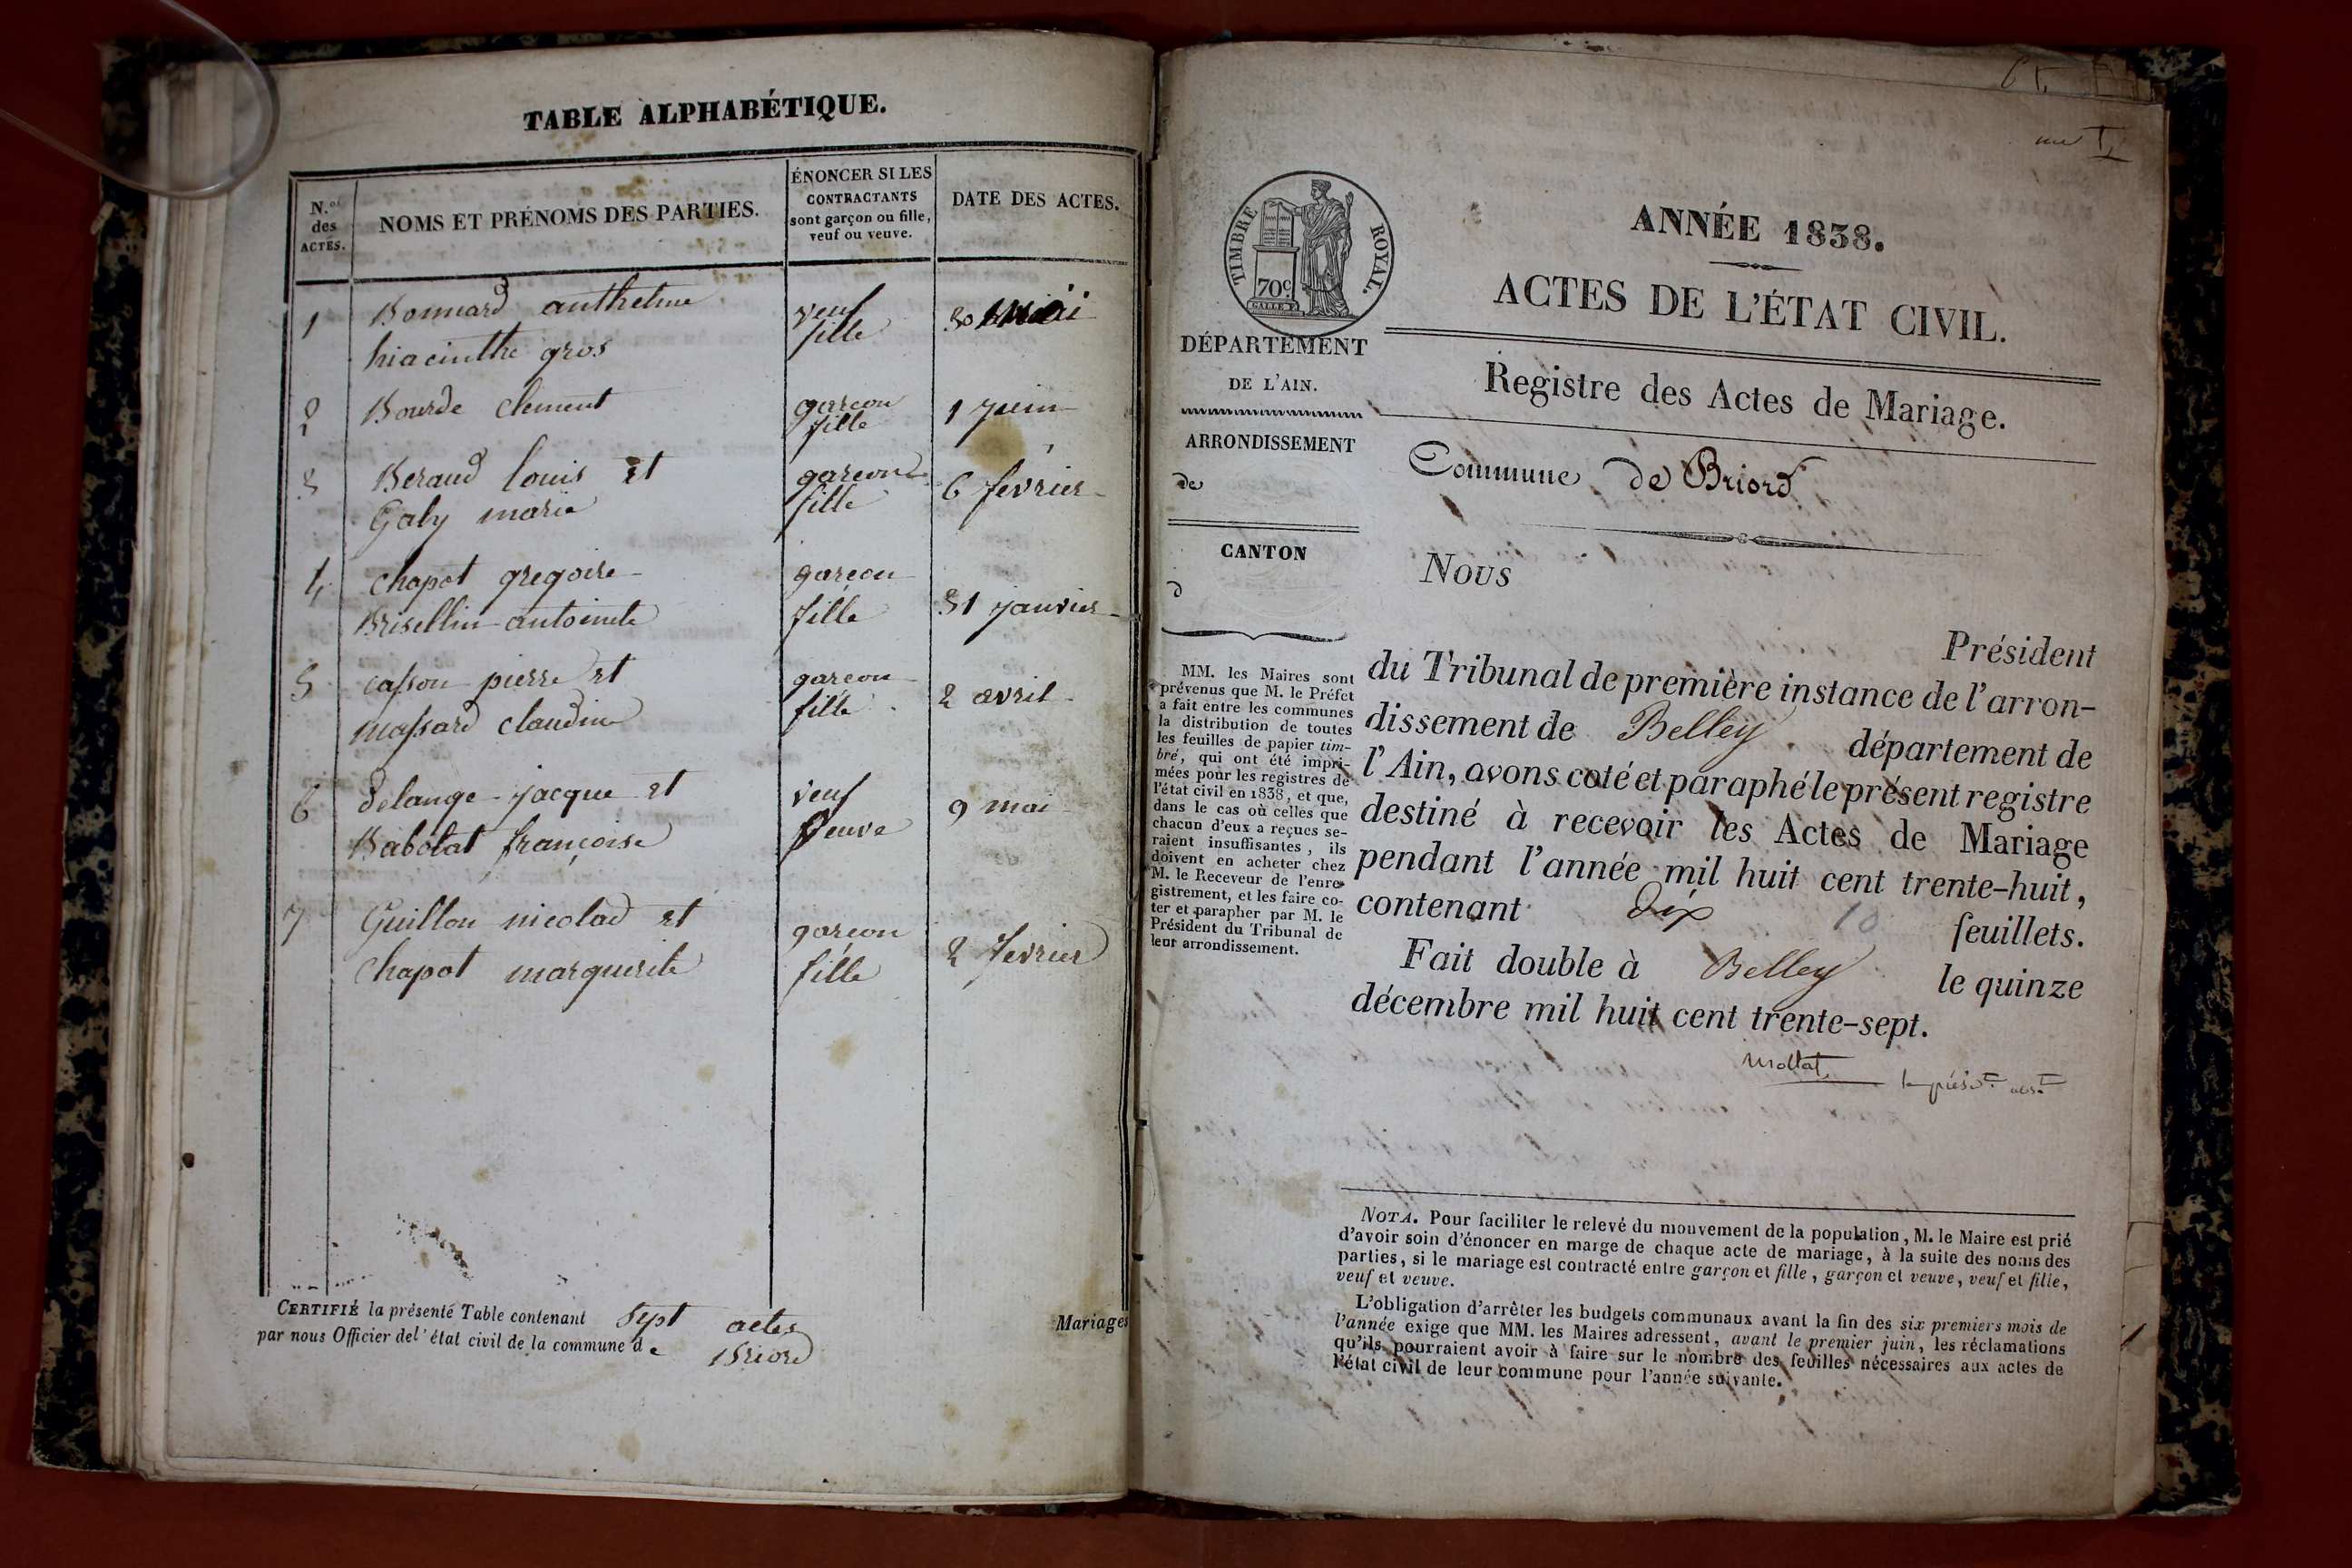 TABLE ALPHABÉTIQUE.
N.os des ACTES.
NOMS ET PRÉNOMS DES PARTIES.
ÉNONCER SI LES
CONTRACTANTS
sont garçon ou fille,
veuf ou veuve.
DATE DES ACTES.
1 Bonnard anthelme veuf 30 mai
hiacinthe gros fille
2 Bourde clement garcon 1 juin
fille
3 Beraud louis et garcon 6 fevrier
Galy marie fille
4 chapot gregoire garcon 31 janvier
Brisellin antoinete fille
5 casson pierre et garcon 2 avril
massard claudine fille
6 delange jacque et veuf 9 mai
Babolat françoise veuve
7 Guillon nicolad et garcon 2 fevrier
chapot marguerite fille
CERTIFIÉ la présente Table contenant sept actes Mariages
par nous Officier de l'état civil de la commune de Briord
TIMBRE ROYAL.
70c
GALLE F
DÉPARTEMENT
DE L'AIN.
ARRONDISSEMENT
de
CANTON
d
MM. les Maires sont
prévenus que M. le Préfet
a fait entre les communes
la distribution de toutes
les feuilles de papier tim-
bré, qui ont été impri-
mées pour les registres de
l'état civil en 1838, et que,
dans le cas où celles que
chacun d'eux a reçues se-
raient insuffisantes, ils
doivent en acheter chez
M. le Receveur de l'enre-
gistrement, et les faire co-
ter et parapher par M. le
Président du Tribunal de
leur arrondissement.
ANNÉE 1838.
ACTES DE L'ÉTAT CIVIL.
Registre des Actes de Mariage.
Commune de Briord
Nous
Président
du Tribunal de première instance de l'arron-
dissement de Belley département de
l'Ain, avons coté et paraphé le présent registre
destiné à recevoir les Actes de Mariage
pendant l'année mil huit cent trente-huit,
contenant Dix 10 feuillets.
Fait double à Belley le quinze
décembre mil huit cent trente-sept.
NOTA. Pour faciliter le relevé du mouvement de la population, M. le Maire est prié
d'avoir soin d'énoncer en marge de chaque acte de mariage, à la suite des noms des
parties, si le mariage est contracté entre garçon et fille, garçon et veuve, veuf et fille,
veuf et veuve.
L'obligation d'arrêter les budgets communaux avant la fin des six premiers mois de
l'année exige que MM. les Maires adressent, avant le premier juin, les réclamations
qu'ils pourraient avoir à faire sur le nombre des feuilles nécessaires aux actes de
l'état civil de leur commune pour l'année suivante.